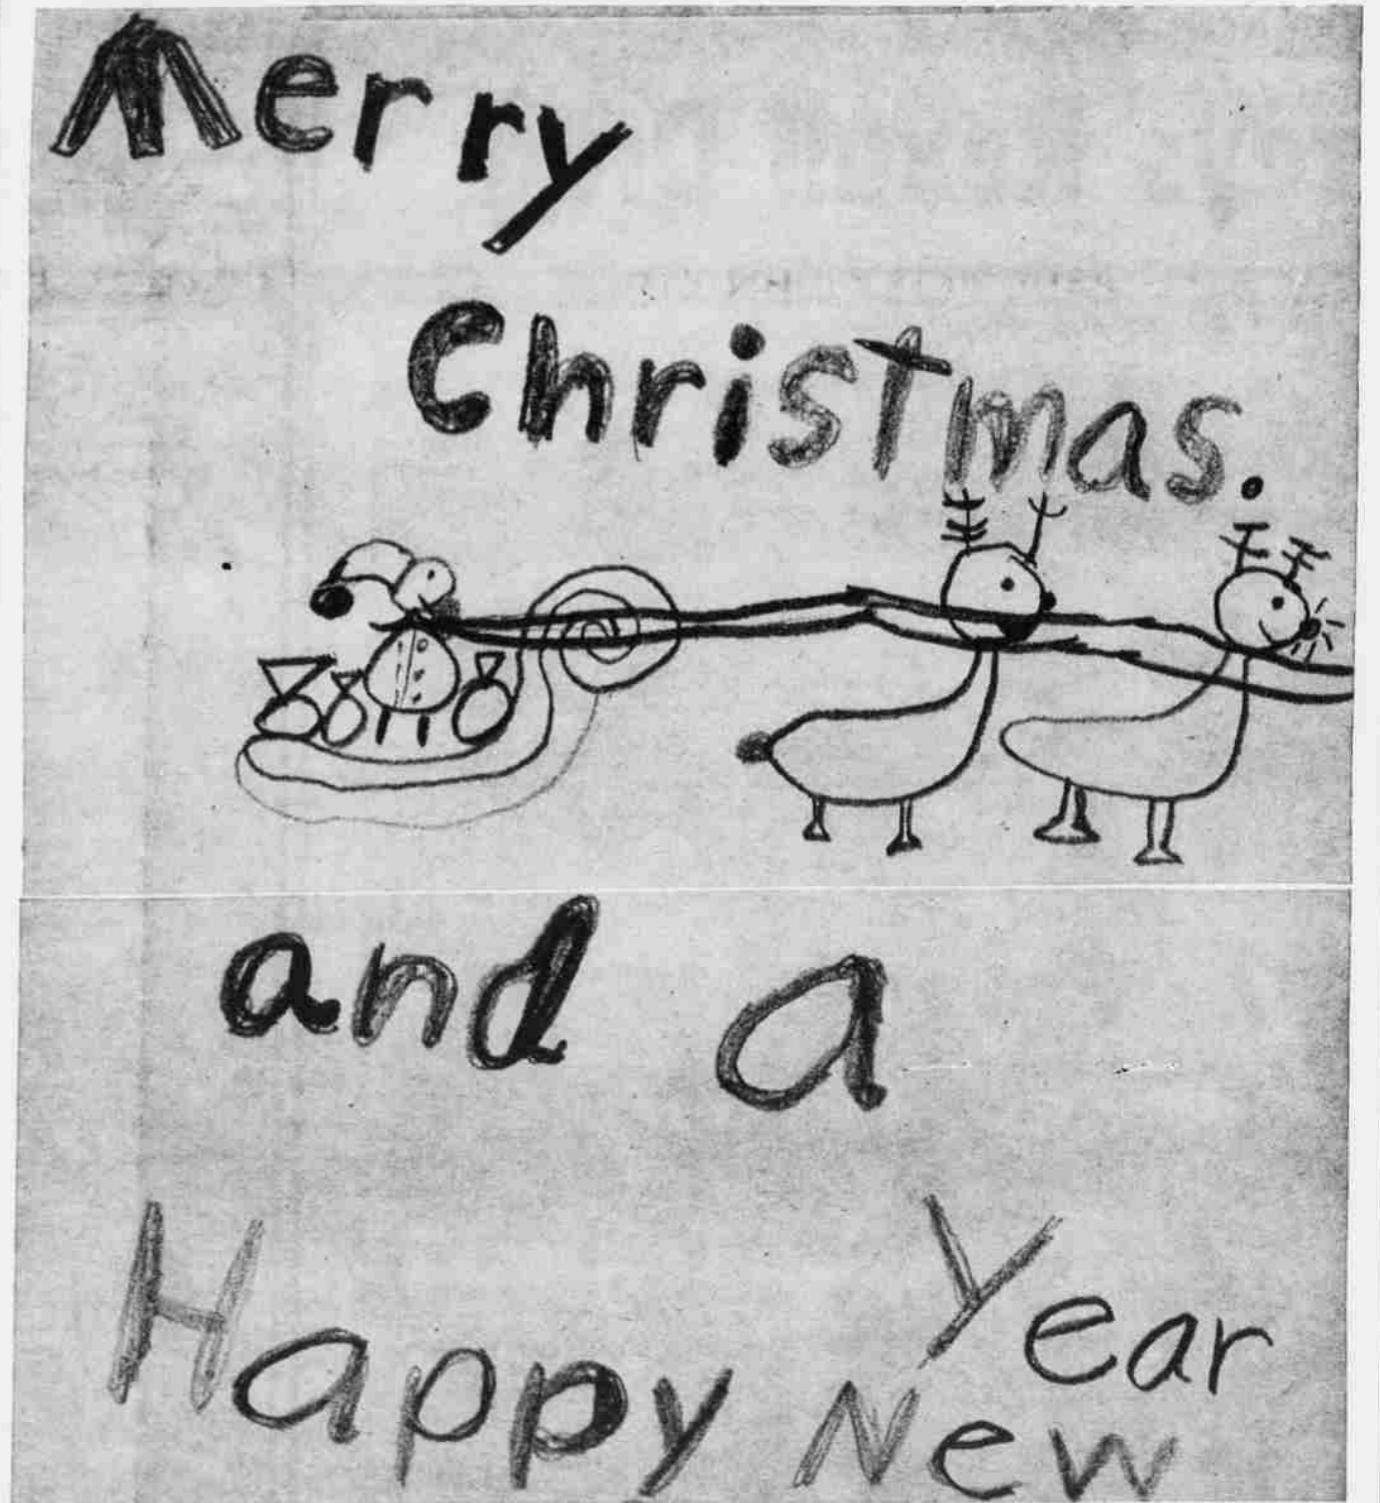 Merry
Christmas.
and a
Happy New
Year